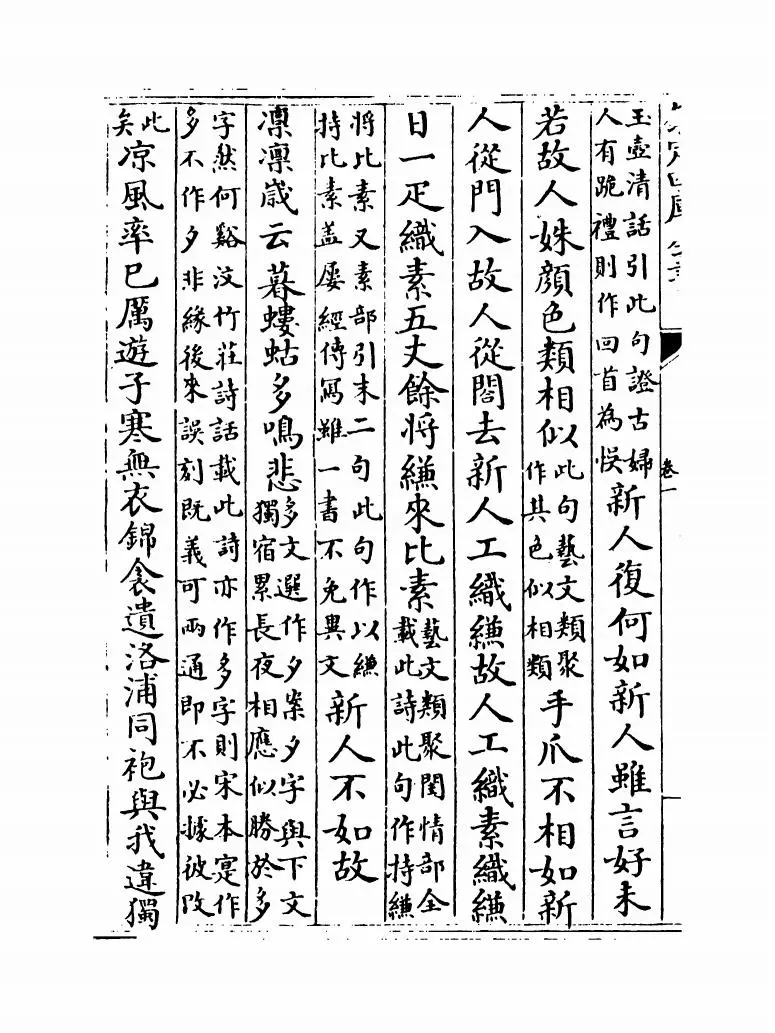 卷一
玉壺清話引此句證古婦
人有跪禮則作回首為悞
新人復何如新人雖言好未
若故人姝顔色類相似
此句藝文類聚
作其色似相類
手爪不相如新
人從門入故人從閤去新人工織縑故人工織素織縑
日一疋織素五丈餘將縑來比素
藝文類聚閨情部全
載此詩此句作持縑
將比素又素部引末二句此句作以縑
持比素盖屢經傳寫雖一書不免異文
新人不如故
凛凛嵗云暮螻蛄多鳴悲
多文選作夕案夕字與下文
獨宿累長夜相應似勝於多
字然何谿汶竹莊詩話載此詩亦作多字則宋本寔作
多不作夕非緣後來誤刻既義可两通即不必據彼改
此
矣
凉風率已厲遊子寒無衣錦衾遺洛浦同袍與我違獨